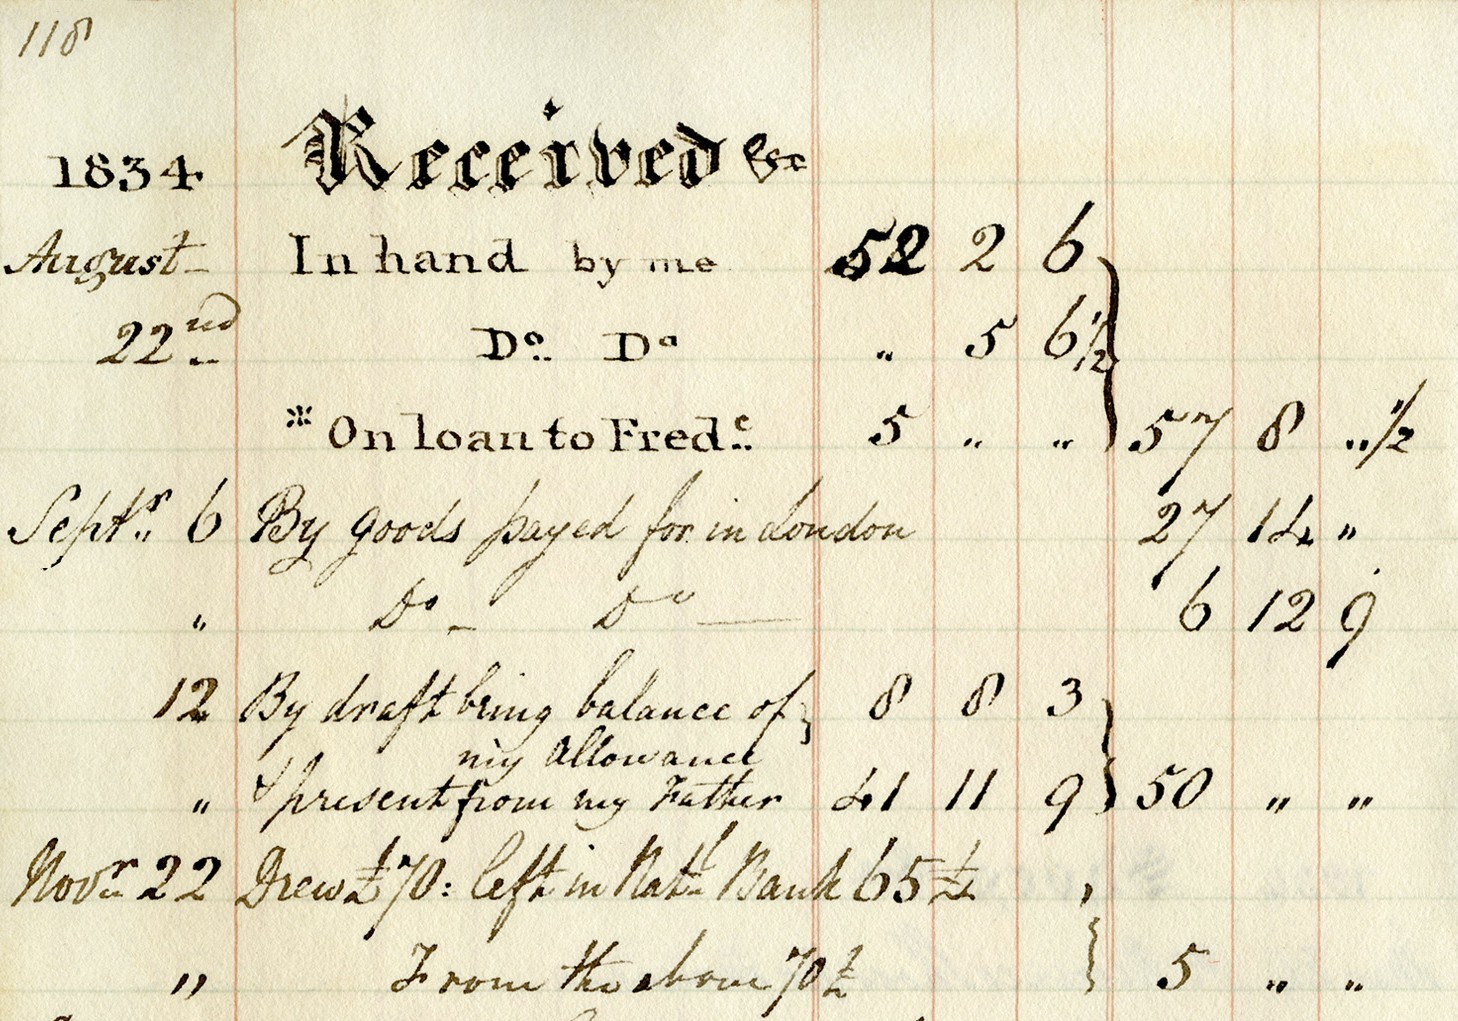 118
1834 Received &c
August In hand by me 52 2 6
22nd Do. Do „ 5 6½
* On loan to Fredc. 5 „ „ 57 8 „½
Septr. 6 By goods payed for in London 27 14 „
„ Do Do 6 12 9
12 By draft being balance of 8 8 3
my allowance
„ & present from my Father 41 11 9 50 „ „
Novr 22 Drew £70: left in Natl Bank 65£
„ From the above 70£ 5 „ „